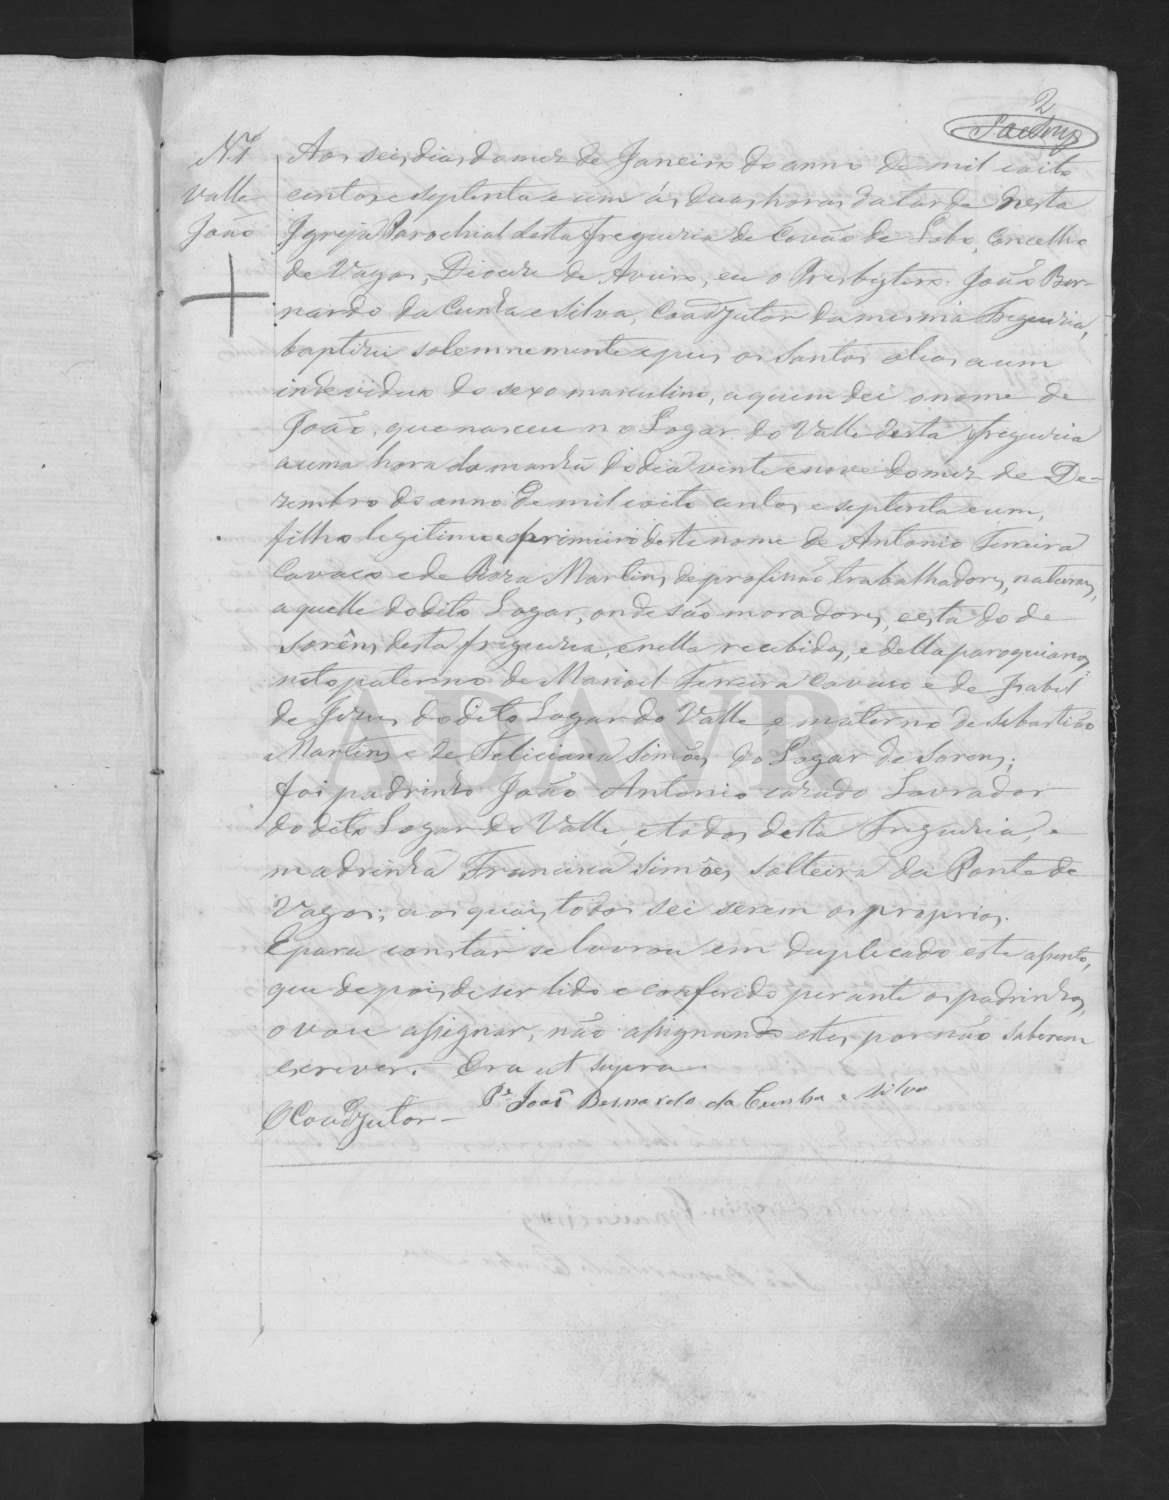 2
Nº 1
Valle
João
Aos seis dias do mez de Janeiro do anno de mil oito
centos e septenta e um ás duas horas da tarde nesta
Igreja Parochial desta freguezia de Covão do Lobo, Concelho
de Vagos, Diocese de Aveiro, eu o Presbytero João Ber-
nardo da Cunha e Silva, Coadjutor da mesma Freguezia,
baptizei solemnemente e puz os Santos oleos a um
individuo do sexo masculino, a quem dei o nome de
João, que nasceu no Logar do Valle desta freguezia
a uma hora da manhã do dia vinte e nove do mez de De-
zembro do anno de mil oito centos e septenta e um,
filho legitimo e primeiro deste nome de Antonio Ferreira
Cavaco e de Roza Martins, de profissão trabalhadores, naturaes,
aquelle do dito Logar, onde são moradores, e esta do de
Sorêns desta freguezia, e nella recebidos, e della paroquianos,
neto paterno de Manoel Ferreira Cavaco e de Isabel
de Jesus do dito Logar do Valle, e materno de Sebastião
Martins e de Feliciana Simões do Logar de Sorens;
foi padrinho João Antonio cazado Lavrador
do dito Logar do Valle, e todos desta Freguezia, e
madrinha Francisca Simões, solteira da Ponte de
Vagos; e os quaes todos sei serem os proprios.
E para constar se lavrou em duplicado este assento,
que depois de ser lido e conferido perante os padrinhos,
o vou assignar, não assignando estes por não saberem
escrever. Era ut supra
O Coadjutor – Pe João Bernardo da Cunha e Silva
ADAVR